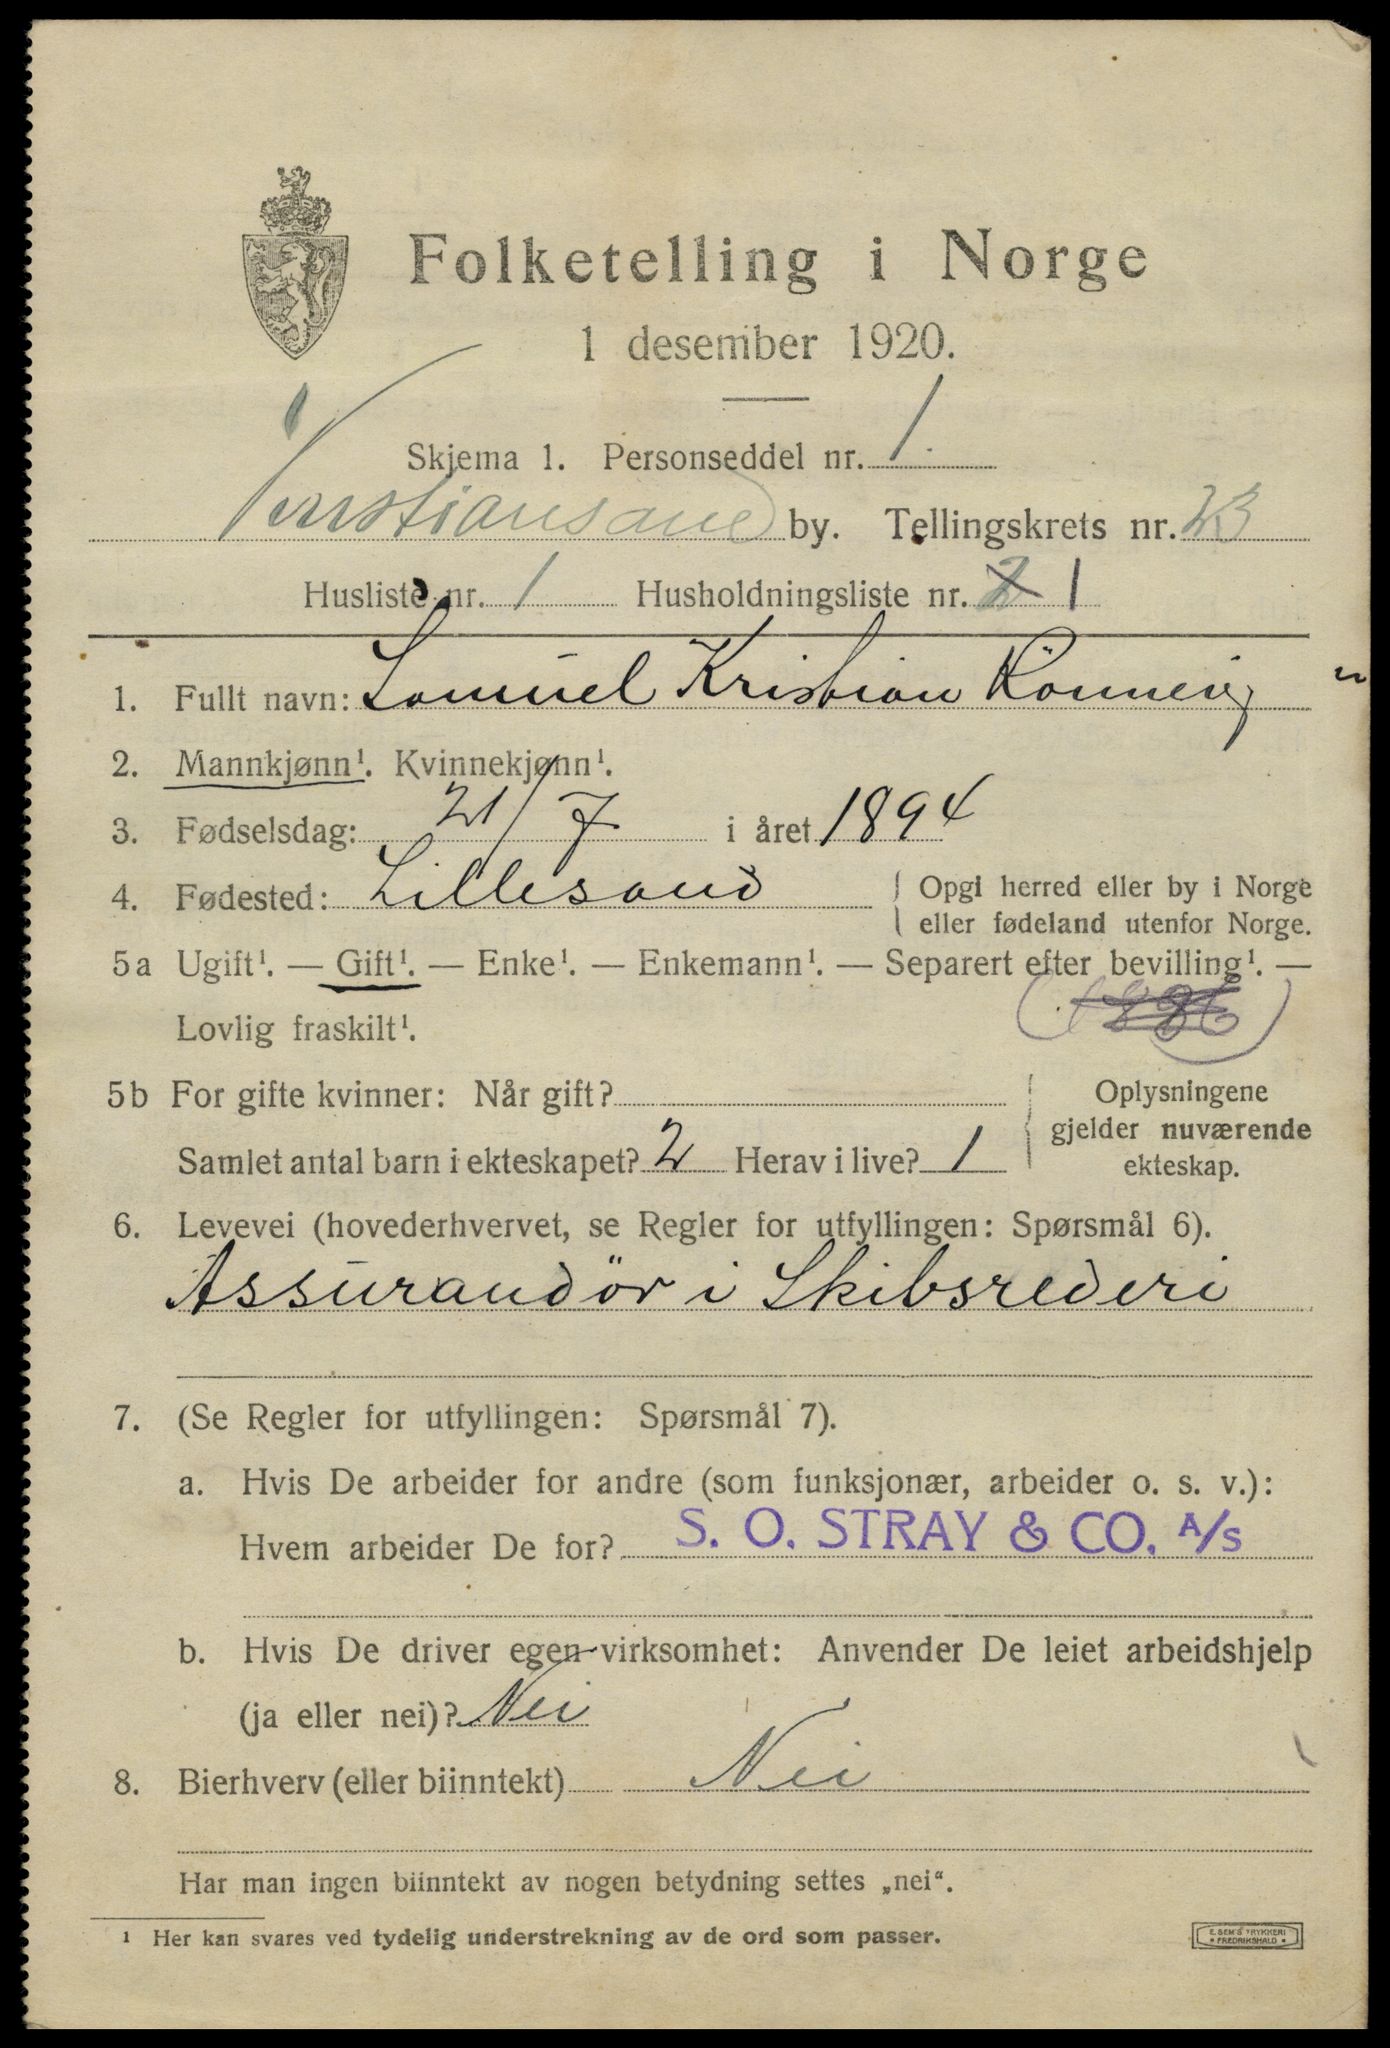 Folketelling i Norge
1 desember 1920.
Skjema 1. Personseddel nr. 1.
Kristiansand by. Tellingskrets nr. 23
Husliste nr. 1 Husholdningsliste nr. 2 1
1. Fullt navn: Samuel Kristian Rönnevig
2. Mannkjønn¹. Kvinnekjønn¹.
3. Fødselsdag: 21/7 i året 1894
4. Fødested: Lillesand
Opgi herred eller by i Norge
eller fødeland utenfor Norge.
5a Ugift¹. — Gift¹. — Enke¹. — Enkemann¹. — Separert efter bevilling¹. —
Lovlig fraskilt¹.
5b For gifte kvinner: Når gift?
Samlet antal barn i ekteskapet? 2 Herav i live? 1
Oplysningene
gjelder nuværende
ekteskap.
6. Levevei (hovederhvervet, se Regler for utfyllingen: Spørsmål 6).
Assurandör i Skibsrederi
7. (Se Regler for utfyllingen: Spørsmål 7).
a. Hvis De arbeider for andre (som funksjonær, arbeider o. s. v.):
Hvem arbeider De for? S. O. STRAY & CO. A/S
b. Hvis De driver egen virksomhet: Anvender De leiet arbeidshjelp
(ja eller nei)? Nei
8. Bierhverv (eller biinntekt) Nei
Har man ingen biinntekt av nogen betydning settes „nei“.
¹ Her kan svares ved tydelig understrekning av de ord som passer.
E. SEM'S TRYKKERI
FREDRIKSHALD